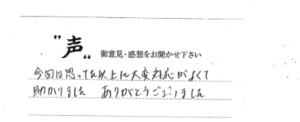 "声"
御意見・感想をお聞かせ下さい
今回は思ってた以上に大変対応がよくて
助かりました ありがとうございました